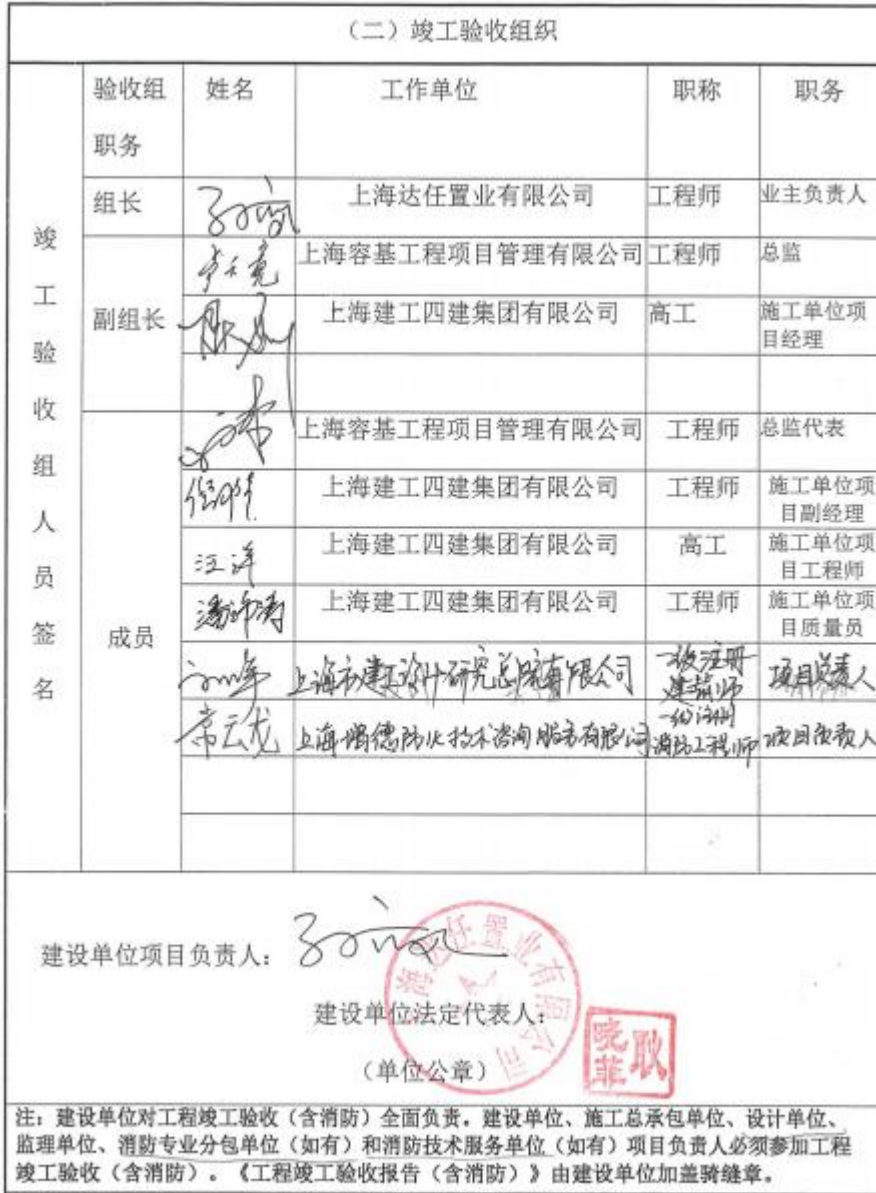 （二）竣工验收组织
验收组职务 姓名 工作单位 职称 职务
竣工验收组人员签名
组长 上海达任置业有限公司 工程师 业主负责人
副组长
上海容基工程项目管理有限公司 工程师 总监
上海建工四建集团有限公司 高工 施工单位项目经理
成员
上海容基工程项目管理有限公司 工程师 总监代表
上海建工四建集团有限公司 工程师 施工单位项目副经理
汪洋 上海建工四建集团有限公司 高工 施工单位项目工程师
上海建工四建集团有限公司 工程师 施工单位项目质量员
上海市建工设计研究总院有限公司 一级注册建筑师 项目负责人
常云龙 上海 德防火技术咨询服务有限公司 一级注册消防工程师 项目负责人
建设单位项目负责人：
上海达任置业有限公司
建设单位法定代表人：
（单位公章）
耿晓菲
注：建设单位对工程竣工验收（含消防）全面负责。建设单位、施工总承包单位、设计单位、
监理单位、消防专业分包单位（如有）和消防技术服务单位（如有）项目负责人必须参加工程
竣工验收（含消防）。《工程竣工验收报告（含消防）》由建设单位加盖骑缝章。